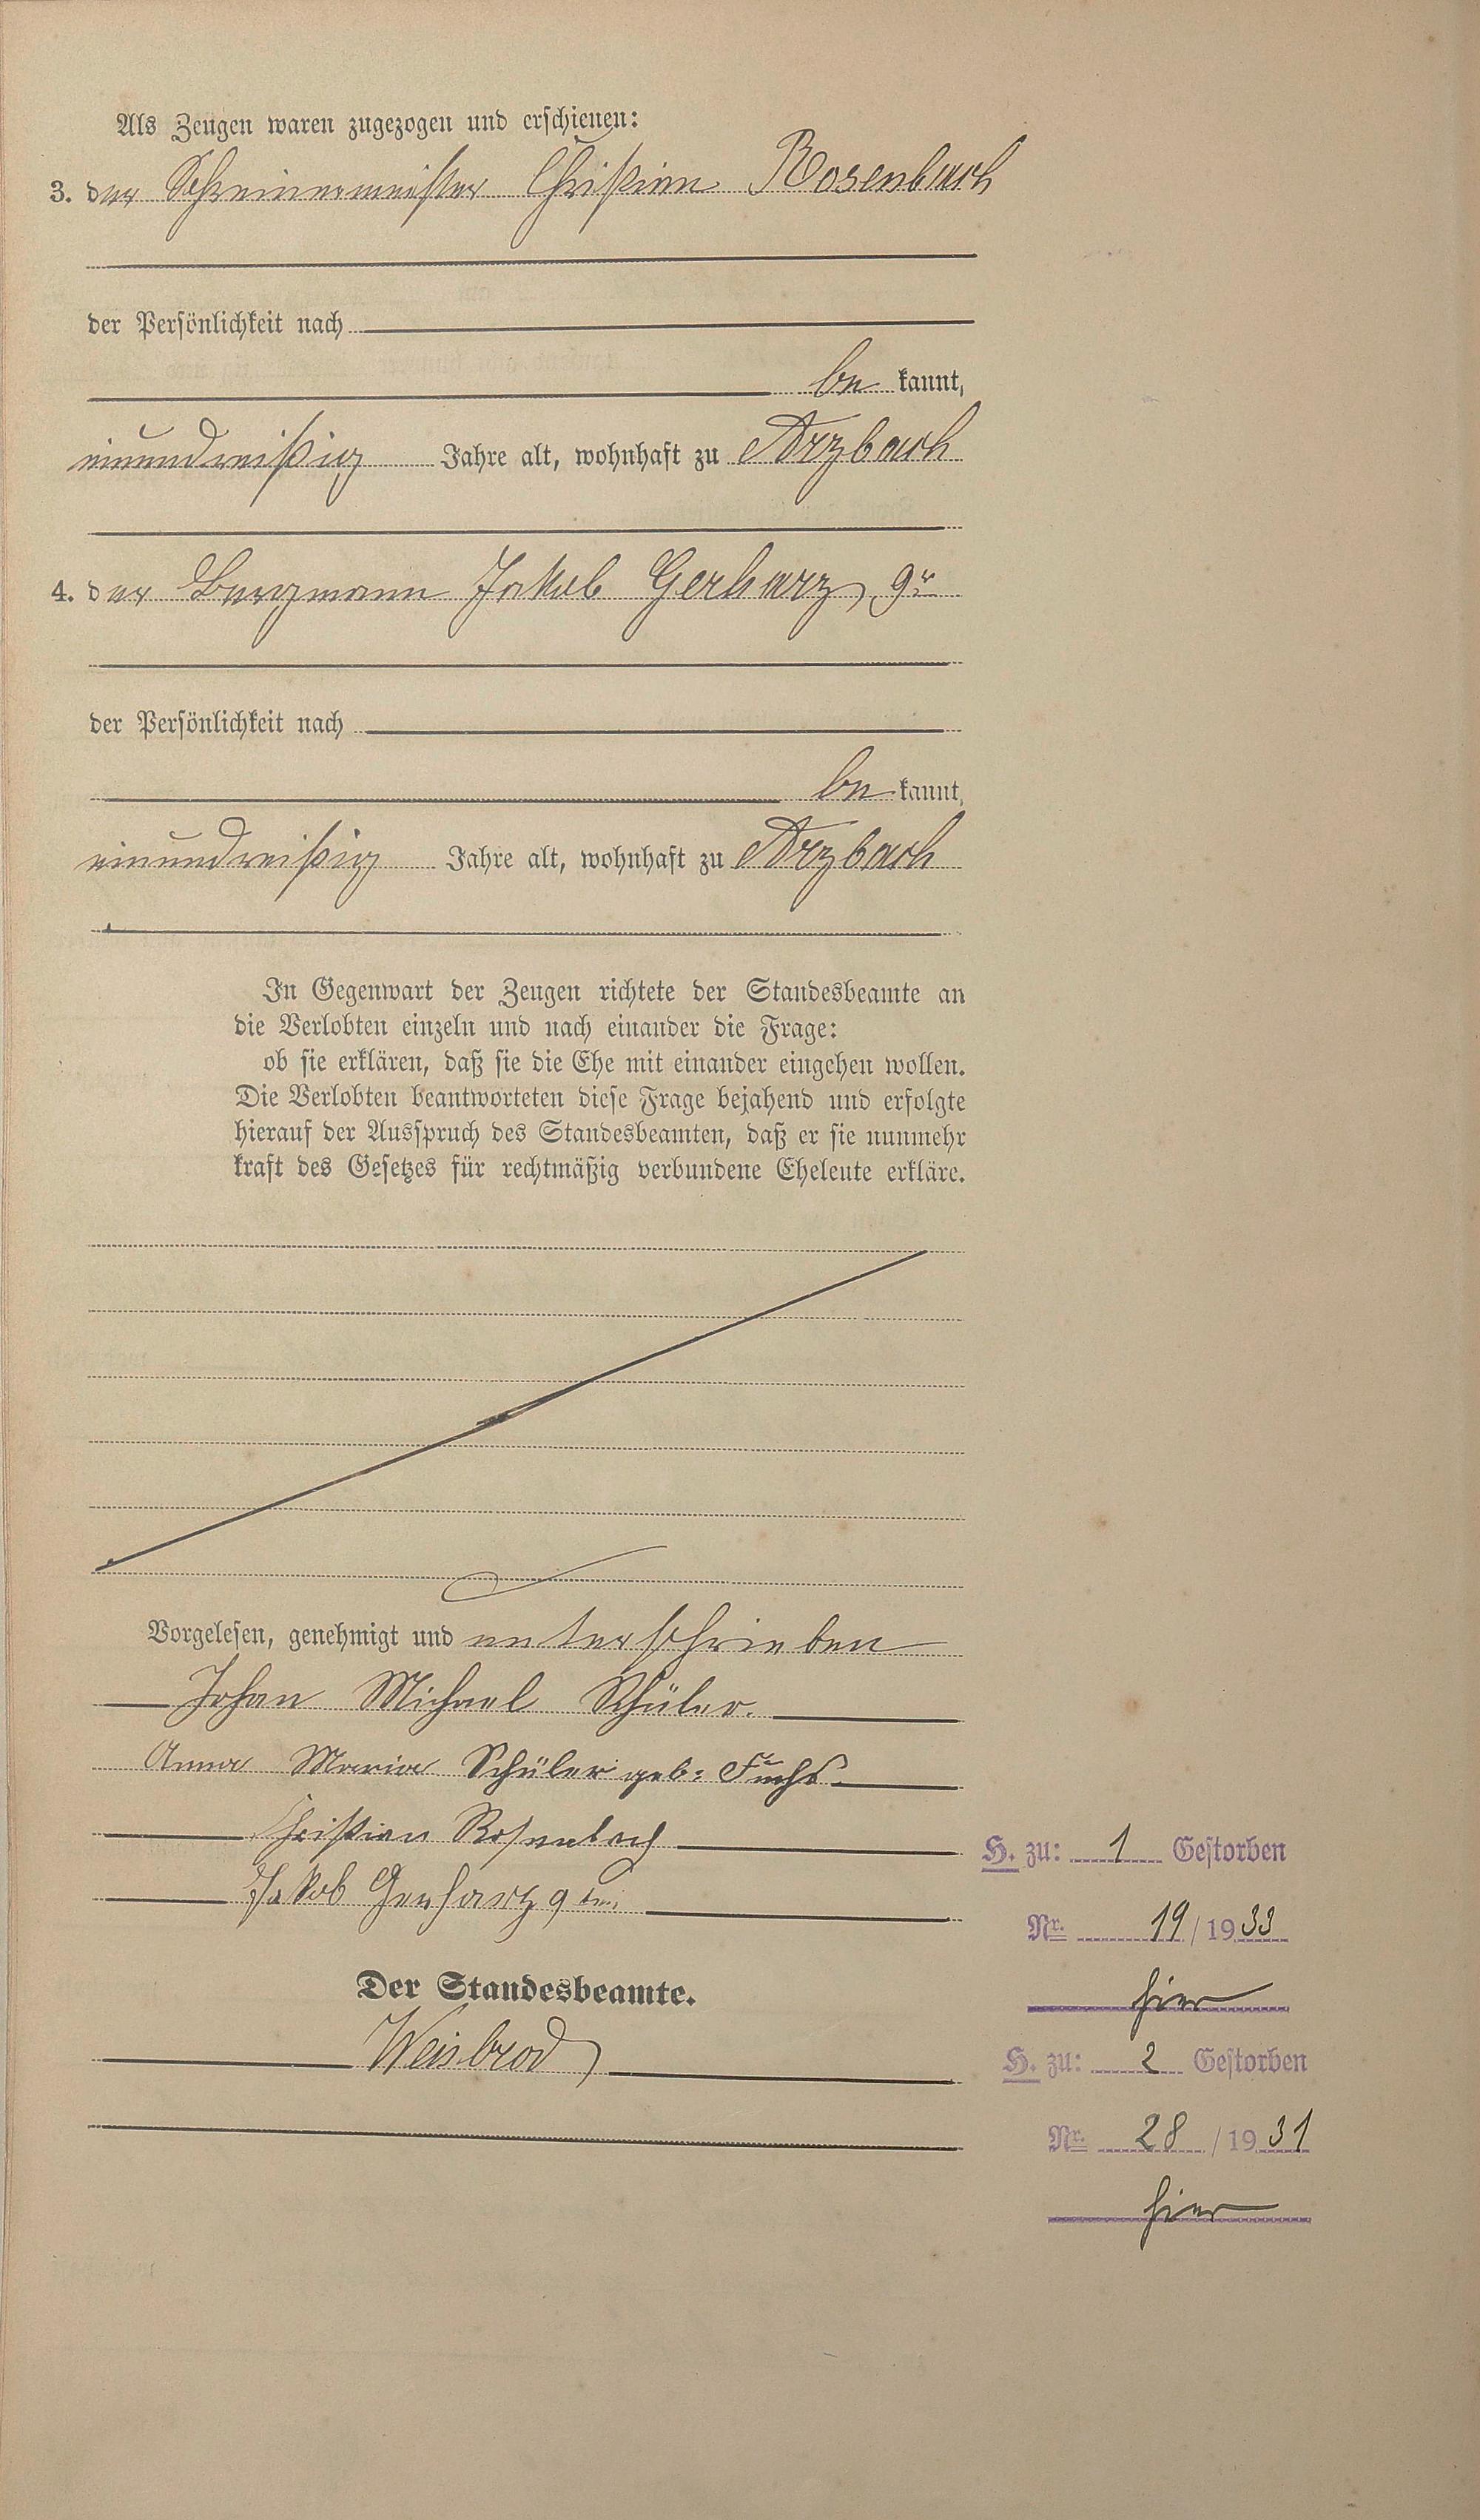 Als Zeugen waren zugezogen und erschienen:
3. der Schreinermeister Christian Rosenbach
der Persönlichkeit nach
be kannt,
einunddreißig Jahre alt, wohnhaft zu Arzbach
4. der Bergmann Jakob Gerharz, 9r
der Persönlichkeit nach
be kannt,
einunddreißig Jahre alt, wohnhaft zu Arzbach
In Gegenwart der Zeugen richtete der Standesbeamte an
die Verlobten einzeln und nach einander die Frage:
ob sie erklären, daß sie die Ehe mit einander eingehen wollen.
Die Verlobten beantworteten diese Frage bejahend und erfolgte
hierauf der Ausspruch des Standesbeamten, daß er sie nunmehr
kraft des Gesetzes für rechtmäßig verbundene Eheleute erkläre.
Vorgelesen, genehmigt und unterschrieben
Johan Michael Schüler.
Anna Maria Schüler geb: Fuchs
Christian Rosenbach
Jakob Gerharz 9
Der Standesbeamte.
Weisbrod
H. zu: 1 Gestorben
Nr. 19/1933
hier
H. zu: 2 Gestorben
Nr. 28/1931
hier